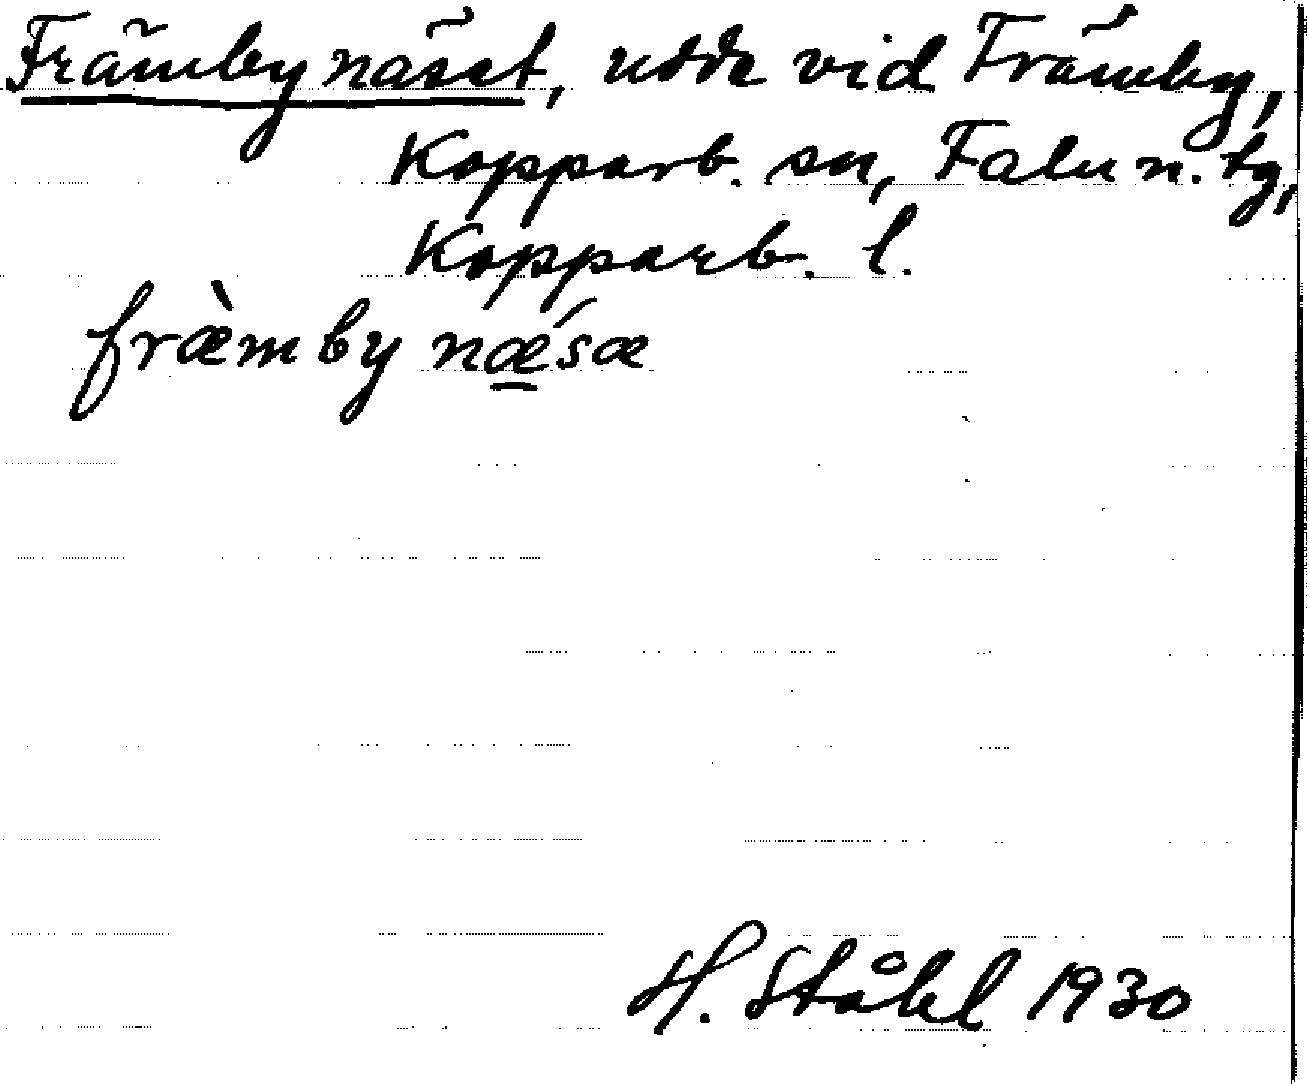 Främbynäset, udde vid Främby,
Kopparb. sn, Falu n. tg,
Kopparb. l.
fræ̀mby nǽ̱sæ
H. Ståhl 1930